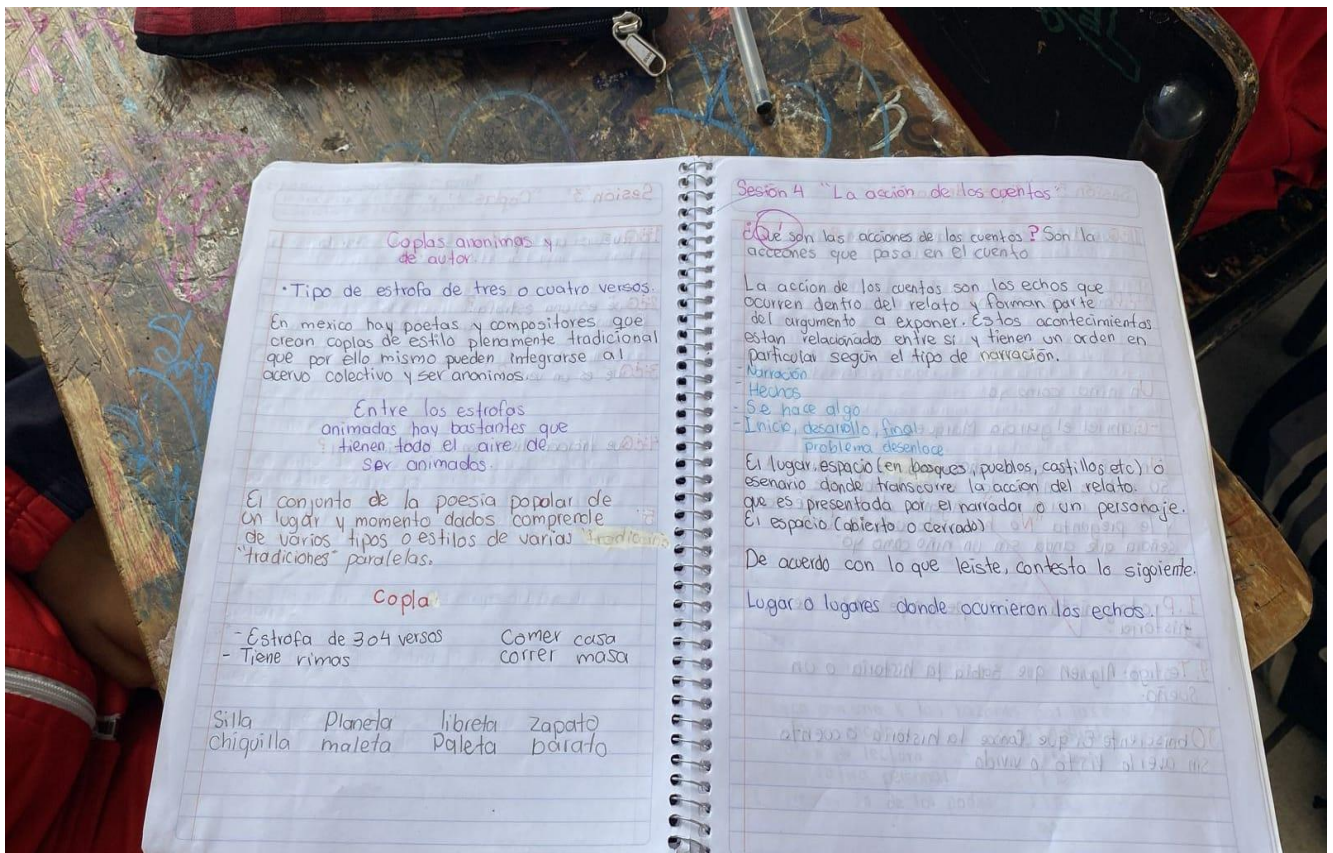 Coplas anonimas y
de autor.
• Tipo de estrofa de tres o cuatro versos.
En mexico hay poetas y compositores que
crean coplas de estilo plenamente tradicional
que por ello mismo pueden integrarse al
acervo colectivo y ser anonimos.
Entre las estrofas
animadas hay bastantes que
tienen todo el aire de
ser animados.
El conjunto de la poesia popular de
un lugar y momento dados comprende
de varios tipos o estilos de varias
"tradiciones" paralelas.
Copla
- Estrofa de 3 o 4 versos
- Tiene rimas
Comer casa
correr masa
Silla Planeta libreta Zapato
chiquilla maleta Paleta barato
Sesión 4 "La acción de los cuentos"
¿Qué son las acciones de los cuentos? Son la
acceones que pasa en el cuento
La accion de los cuentos son los echos que
ocurren dentro del relato y forman parte
del argumento a exponer. Estos acontecimientos
estan relacionados entre si y tienen un orden en
particular según el tipo de narración.
- Narración
- Hechos
- Se hace algo
- Inicio, desarrollo, final
problema desenlace
El lugar, espacio (en bosques, pueblos, castillos etc) o
esenario donde transcurre la accion del relato.
que es presentada por el narrador o un personaje.
El espacio (abierto o cerrado)
De acuerdo con lo que leiste, contesta lo siguiente.
Lugar o lugares donde ocurrieron los echos.